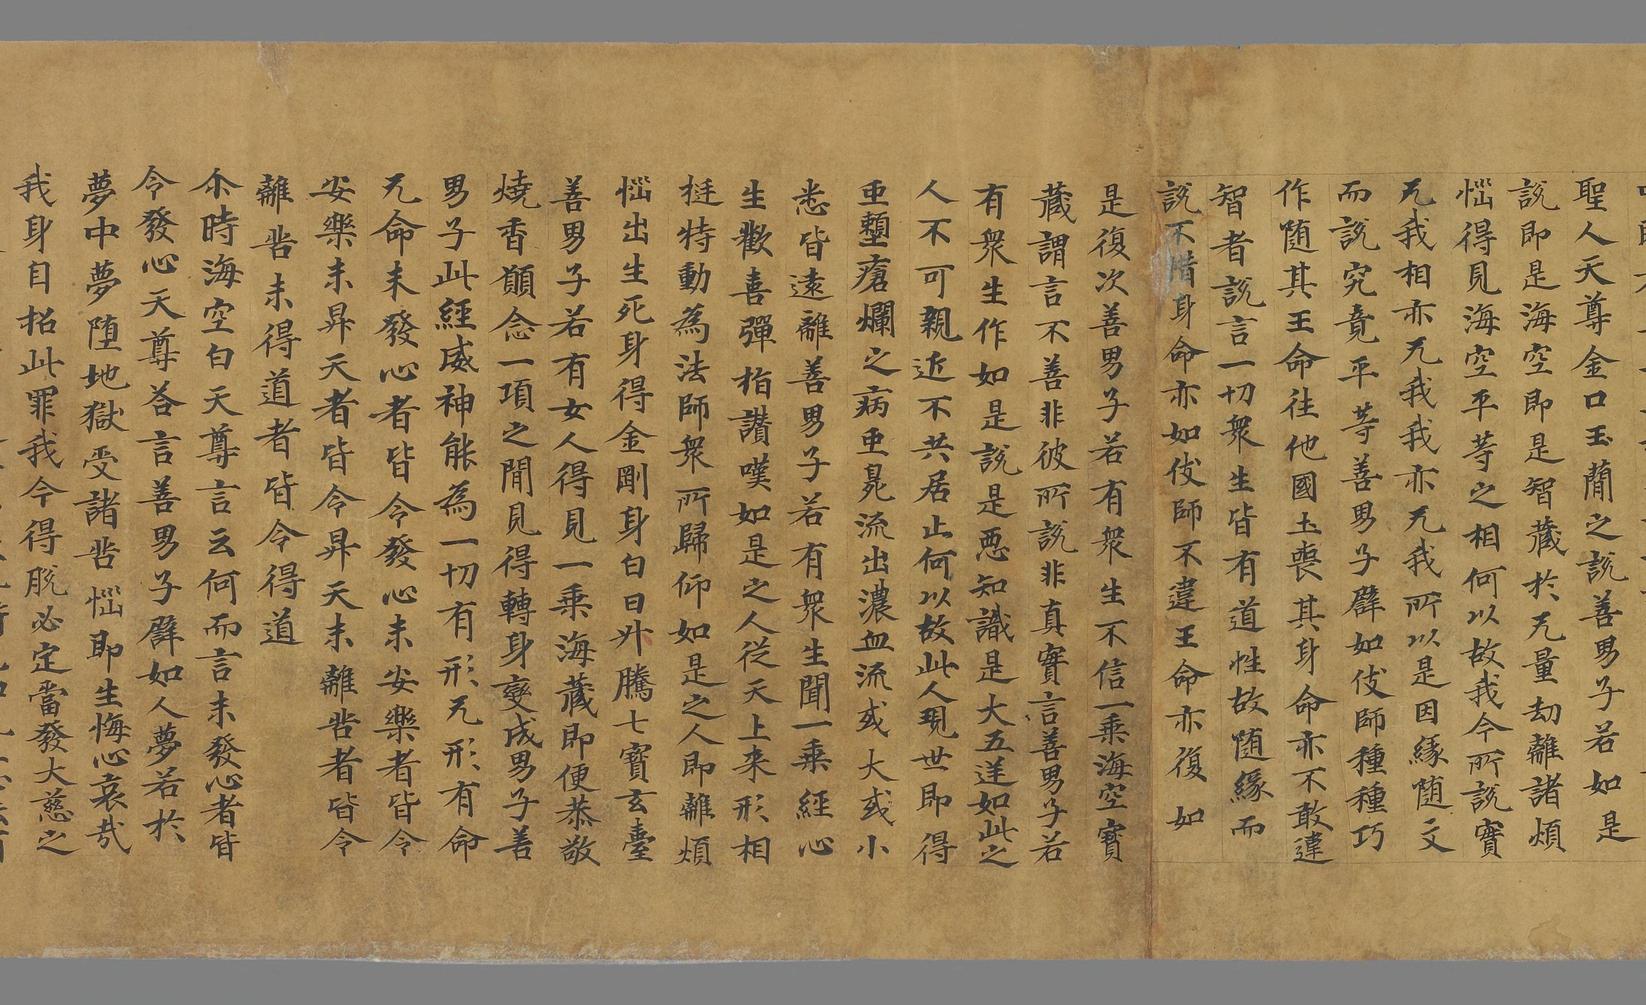 聖人天尊金口玉蕳之說善男子若如是
說即是海空即是智藏於无量劫離諸煩
惱得見海空平等之相何以故我今所說實
无我相亦无我我亦无我所以是因緣随文
而說究竟平等善男子譬如伎師種種巧
作随其王命往他國土喪其身命亦不敢違
智者說言一切衆生皆有道性故随緣而
說不惜身命亦如伎師不違王命亦復如
是復次善男子若有衆生不信一乘海空寶
藏謂言不善非彼所說非真實言善男子若
有衆生作如是說是惡知識是大五逆如此之
人不可親近不共居止何以故此人現世即得
重瘡爛之病重晃流出濃血流或大或小
悉皆遠離善男子若有衆生聞一乘經心
生歡喜彈指讚嘆如是之人從天上来形相
挺特動為法師衆所歸仰如是之人即離煩
惱出生死身得金剛身白日升騰七寶玄臺
善男子若有女人得見一乘海藏即便恭敬
燒香願念一項之間見得轉身變成男子善
男子此經威神能為一切有形无形有命
无命未發心者皆令發心未安樂者皆令
安樂未昇天者皆令昇天未離苦者皆令
離苦未得道者皆令得道
尒時海空白天尊言云何而言未發心者皆
令發心天尊荅言善男子譬如人夢若於
夢中夢堕地獄受諸苦惱即生悔心哀哉
我身自招此罪我今得脱必定當發大慈之